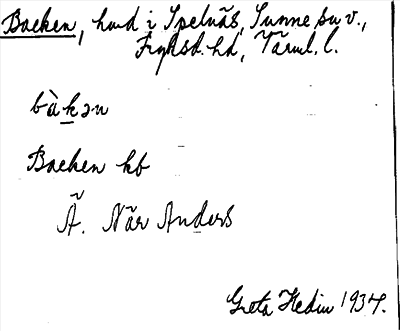 Backen, hmd i Spelnäs, Sunne su v.,
Fryksd. hd, Värml. l.
bàkən
Backen hb
Ä. När Anders
Greta Hedin 1934.